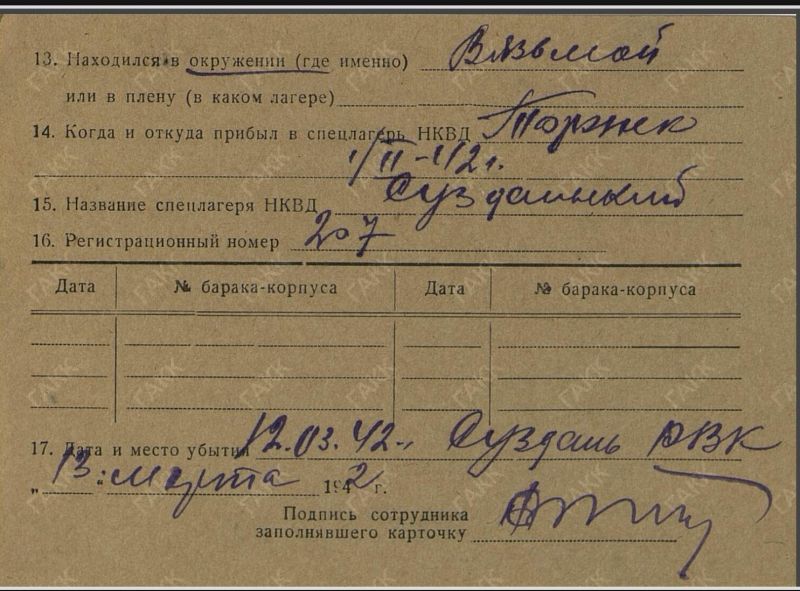 13. Находился в окружении (где именно) Вязьмой
или в плену (в каком лагере)
14. Когда и откуда прибыл в спецлагерь НКВД Торжек
1/II-42 г.
15. Название спецлагеря НКВД Суздальский
16. Регистрационный номер 207
Дата № барака-корпуса Дата № барака-корпуса
17. Дата и место убытия 12.03.42 г. Суздаль РВК
„13“ марта 1942 г.
Подпись сотрудника
заполнявшего карточку